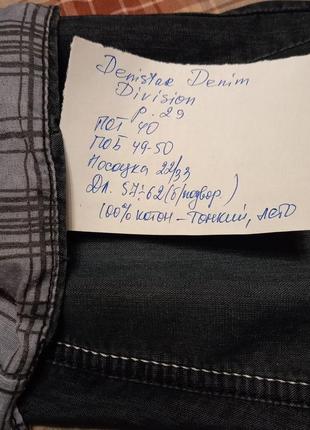 Denistar Denim
Division
р. 29
ПОТ 40
ПОБ 49-50
Посадка 22/33
Дл. 57÷62 (б/подвор.)
100% котон - тонкий, лето